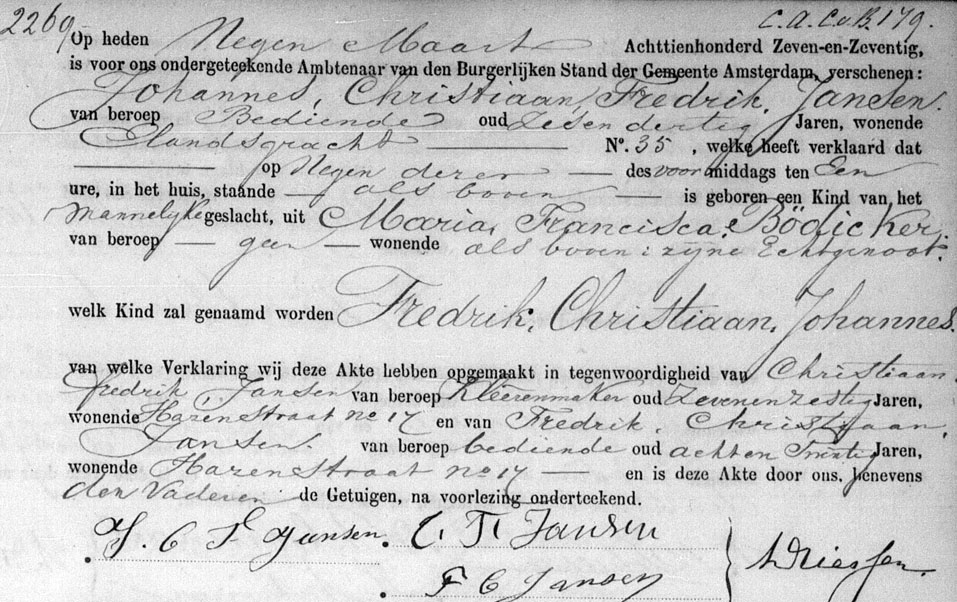 2269 C.A.C.v.B. 179.
Op heden Negen Maart Achttienhonderd Zeven-en-Zeventig,
is voor ons ondergeteekende Ambtenaar van den Burgerlijken Stand der Gemeente Amsterdam, verschenen:
Johannes, Christiaan, Fredrik, Jansen.
van beroep Bediende oud Zesendertig Jaren, wonende
Elandsgracht No. 35, welke heeft verklaard dat
op Negen dezer des voor middags ten Een
ure, in het huis, staande als boven is geboren een Kind van het
Mannelyke geslacht, uit Maria, Francisca, Bödicker,
van beroep geen wonende als boven: zijne Echtgenoot.
welk Kind zal genaamd worden Fredrik, Christiaan, Johannes.
van welke Verklaring wij deze Akte hebben opgemaakt in tegenwoordigheid van Christiaan
Fredrik, Jansen van beroep Kleerenmaker oud Zevenenzestig Jaren,
wonende Hazenstraat no 17 en van Fredrik, Christiaan,
Jansen van beroep bediende oud achten Jaren,
wonende Hazenstraat no 17 en is deze Akte door ons, benevens
den Vader en de Getuigen, na voorlezing onderteekend.
J. C. F. Jansen. C F Jansen
F C Jansen